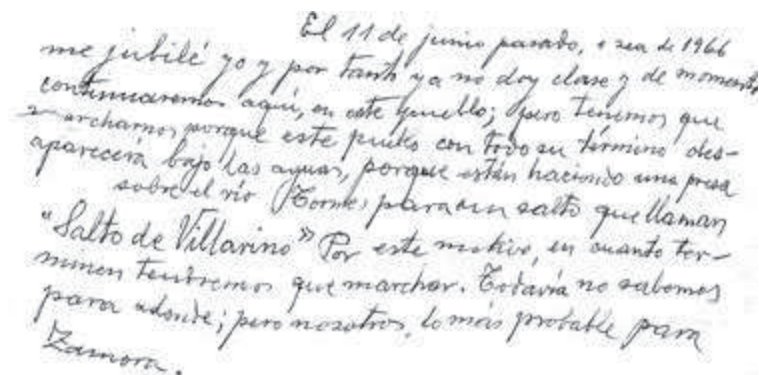 El 11 de junio pasado, o sea de 1966
me jubilé yo y por tanto ya no doy clase y de momento
continuaremos aquí, en este pueblo; pero tenemos que
marcharnos porque este pueblo con todo su término des-
aparecerá bajo las aguas, porque están haciendo una presa
sobre el río Tormes para un salto que llaman
"Salto de Villarino" Por este motivo, en cuanto ter-
minen tendremos que marchar. Todavía no sabemos
para adonde; pero nosotros, lo más probable para
Zamora.